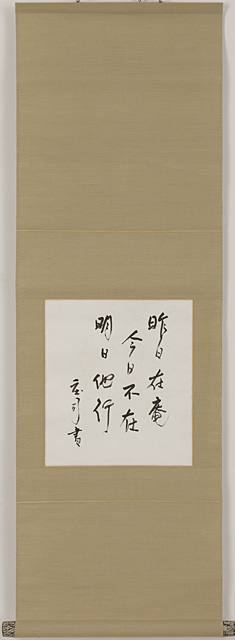 昨日在庵
今日不在
明日他行
庄司書